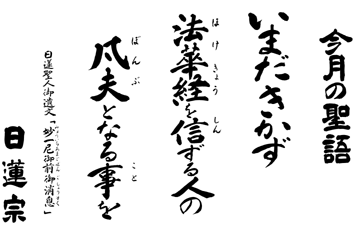 今月の聖語
いまだきかず
法華経を信ずる人の
凡夫となる事を
日蓮聖人御遺文「妙一尼御前御消息」
日蓮宗